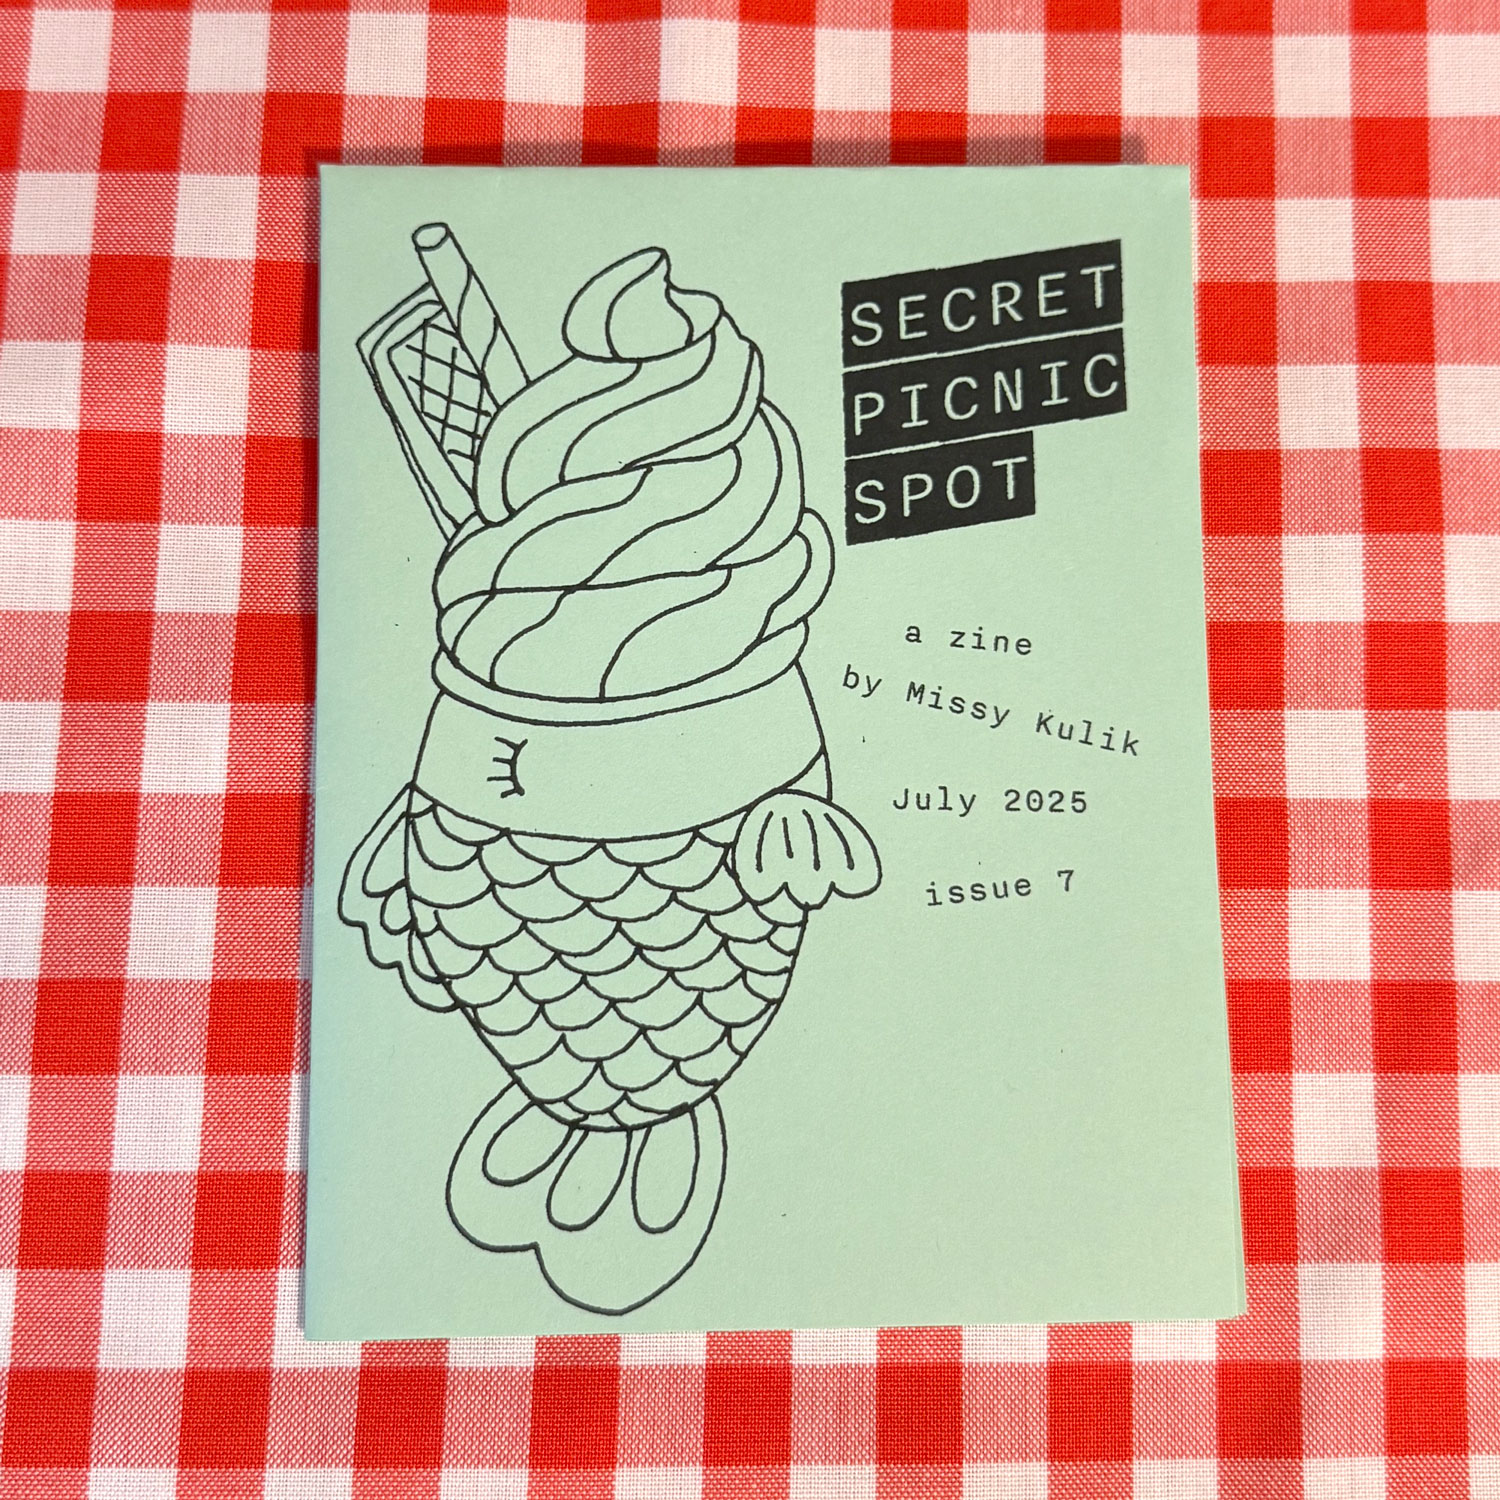 SECRET
PICNIC
SPOT
a zine
by Missy Kulik
July 2025
issue 7